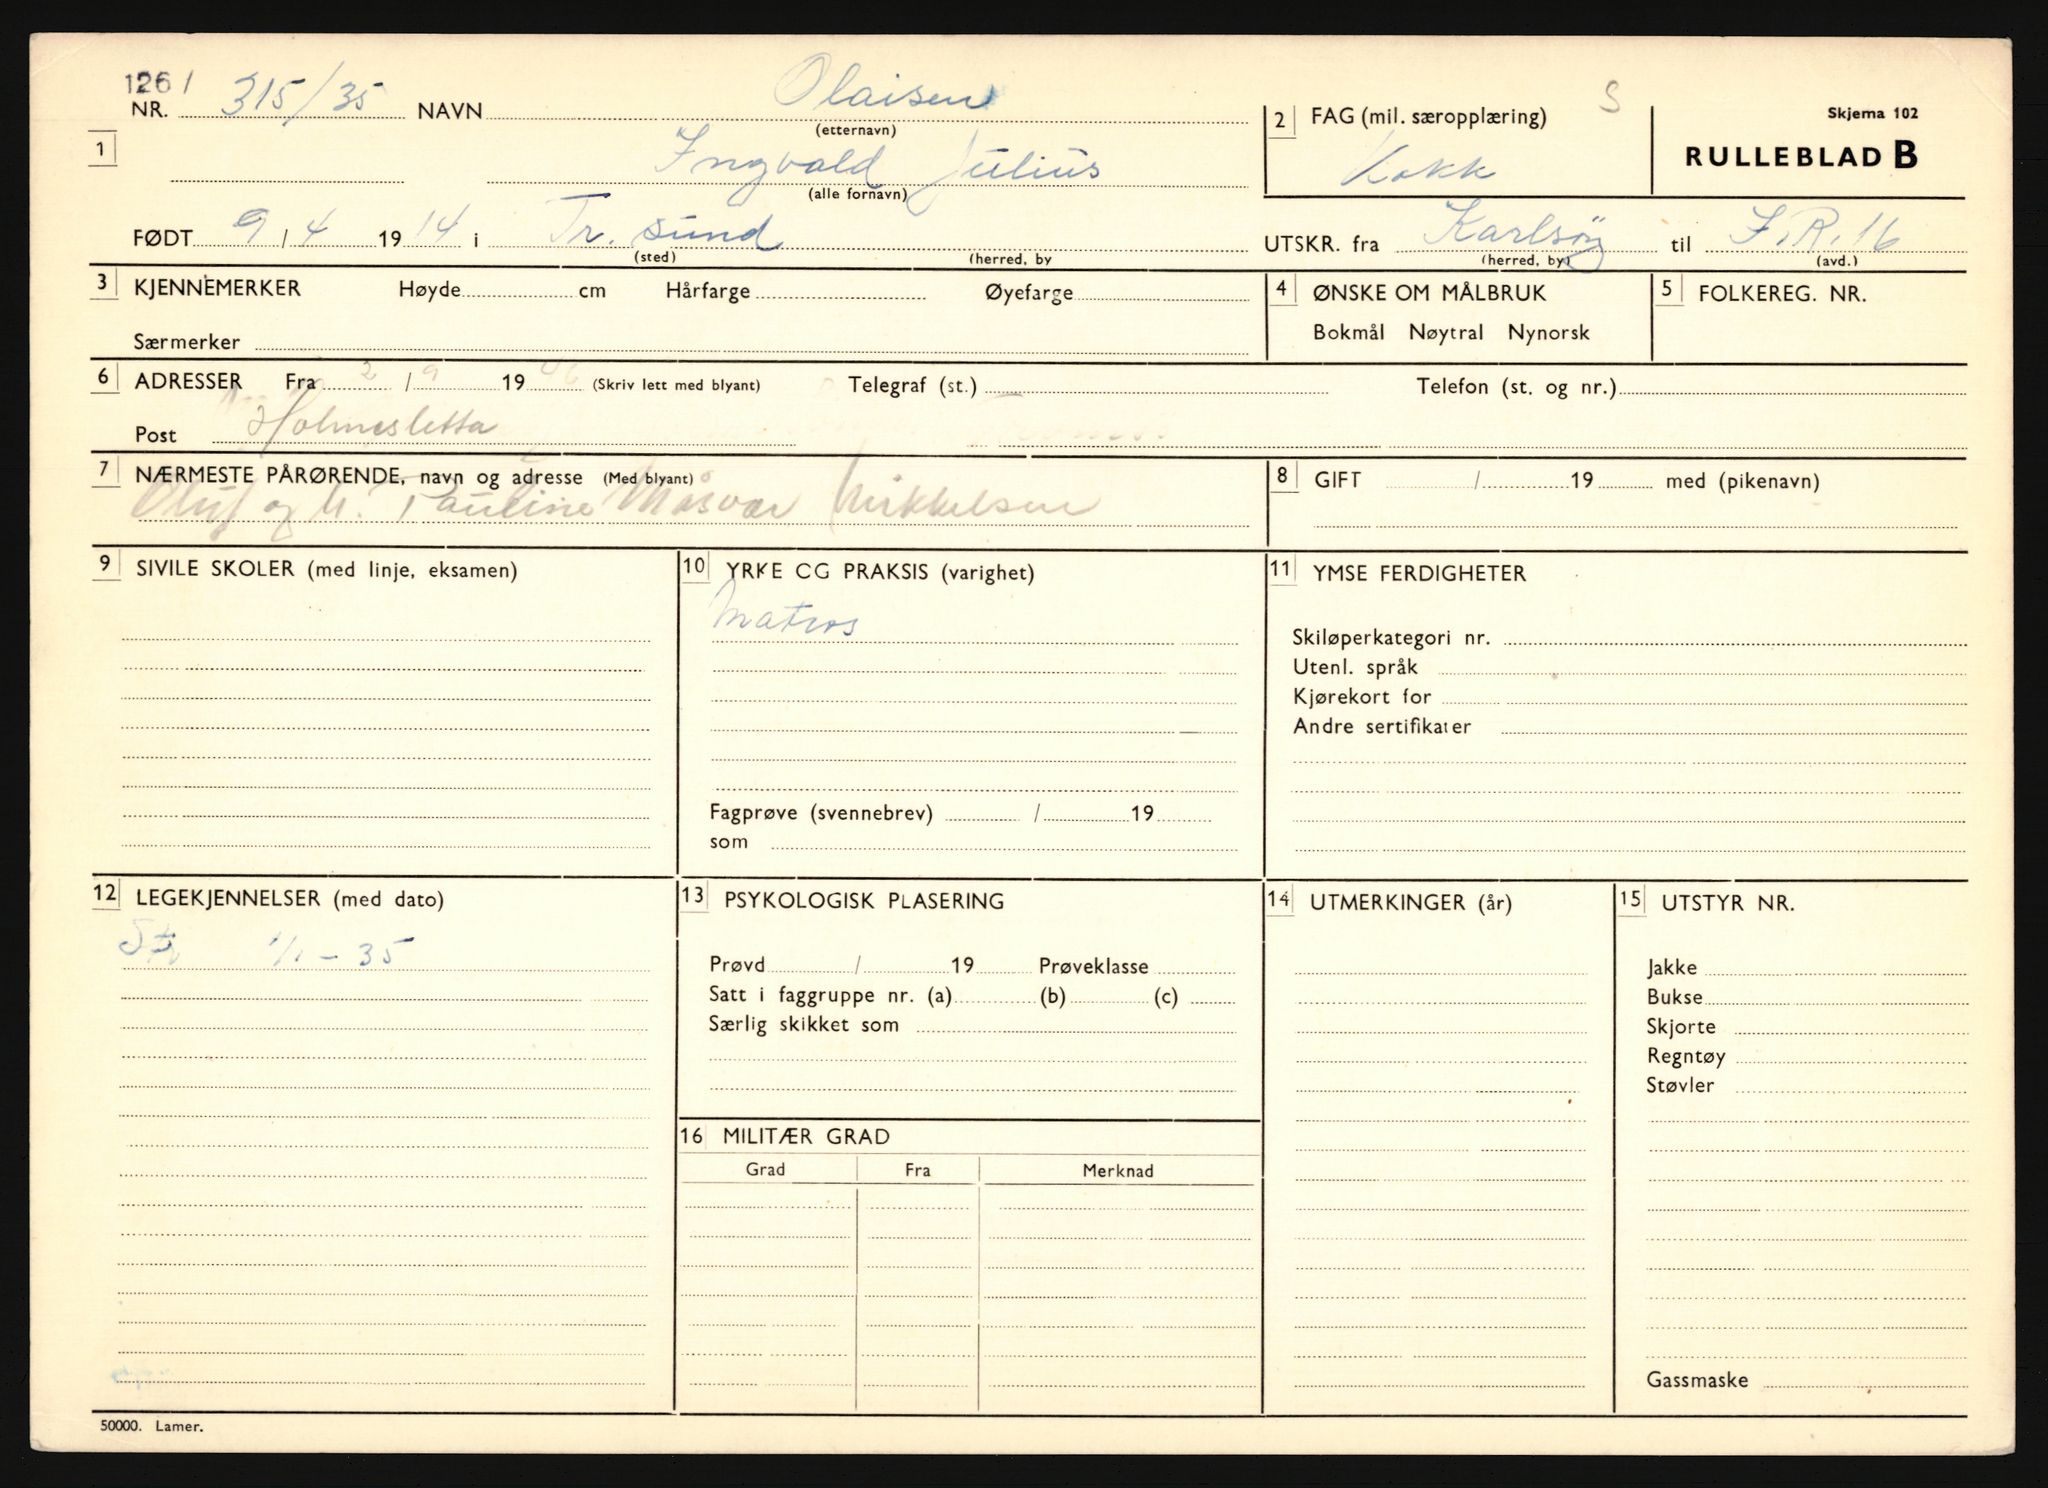 1261
NR. 315/35 NAVN Olaisen
(etternavn)
1 Ingvald Julius
(alle fornavn)
2 FAG (mil. særopplæring) S
Kokk
Skjema 102
RULLEBLAD B
FØDT 9/4 1914 i Tr. sund
(sted) (herred, by
UTSKR. fra Karlsøy til I.R. 16
(herred, by) (avd.)
3 KJENNEMERKER Høyde cm Hårfarge Øyefarge
Særmerker
4 ØNSKE OM MÅLBRUK
Bokmål Nøytral Nynorsk
5 FOLKEREG. NR.
6 ADRESSER Fra 2/9 1946 (Skriv lett med blyant) Telegraf (st.) Telefon (st. og nr.)
Post Holmesletta
7 NÆRMESTE PÅRØRENDE, navn og adresse (Med blyant)
Oluf og M. Pauline Måsvær Mikkelsen
8 GIFT / 19 med (pikenavn)
9 SIVILE SKOLER (med linje, eksamen)
10 YRKE OG PRAKSIS (varighet)
Matros
Fagprøve (svennebrev) / 19
som
11 YMSE FERDIGHETER
Skiløperkategori nr.
Utenl. språk
Kjørekort for
Andre sertifikater
12 LEGEKJENNELSER (med dato)
Str 1/1 - 35
13 PSYKOLOGISK PLASERING
Prøvd / 19 Prøveklasse
Satt i faggruppe nr. (a) (b) (c)
Særlig skikket som
14 UTMERKINGER (år)
15 UTSTYR NR.
Jakke
Bukse
Skjorte
Regntøy
Støvler
Gassmaske
16 MILITÆR GRAD
Grad Fra Merknad
50000. Lamer.